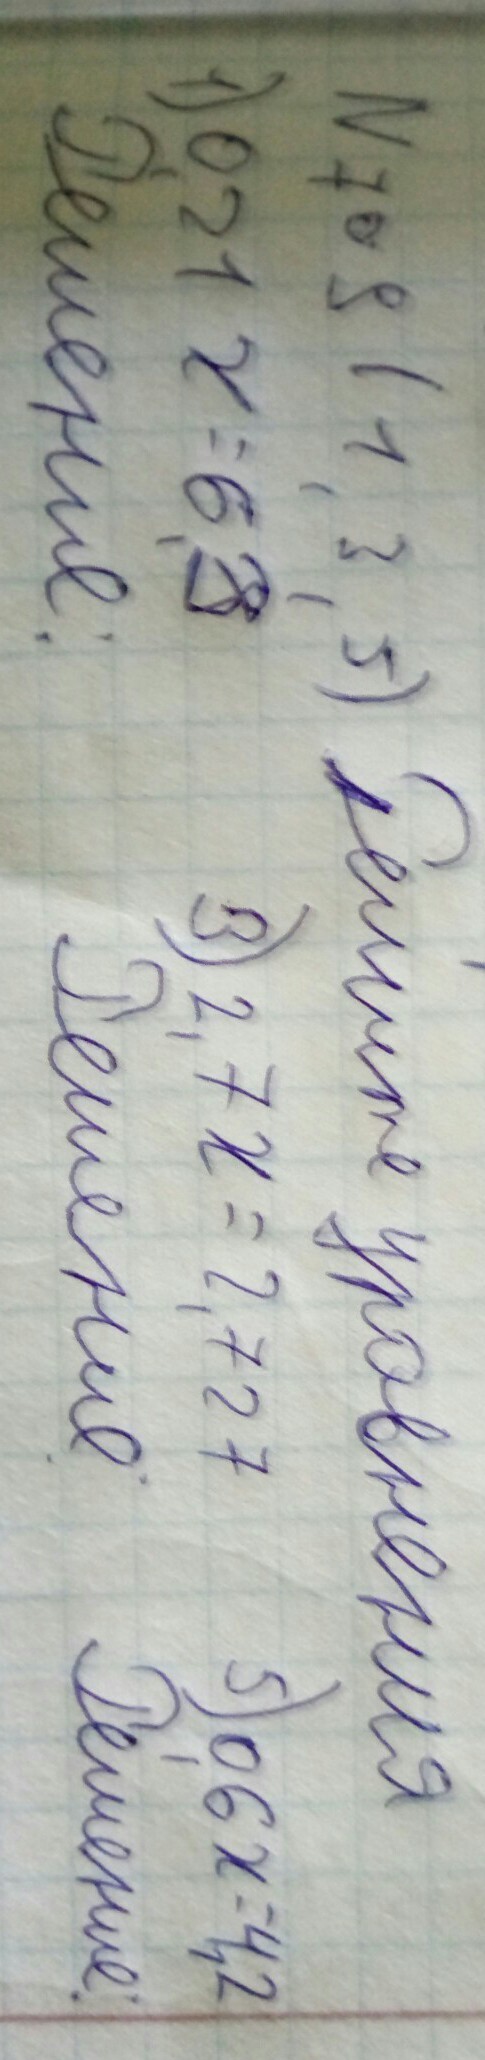 N 708 (1, 3, 5) Решите уровнения
1) 0,21 x = 6,3 3) 2,7 x = 2,727 5) 0,6 x = 4,2
Решение: Решение: Решение: